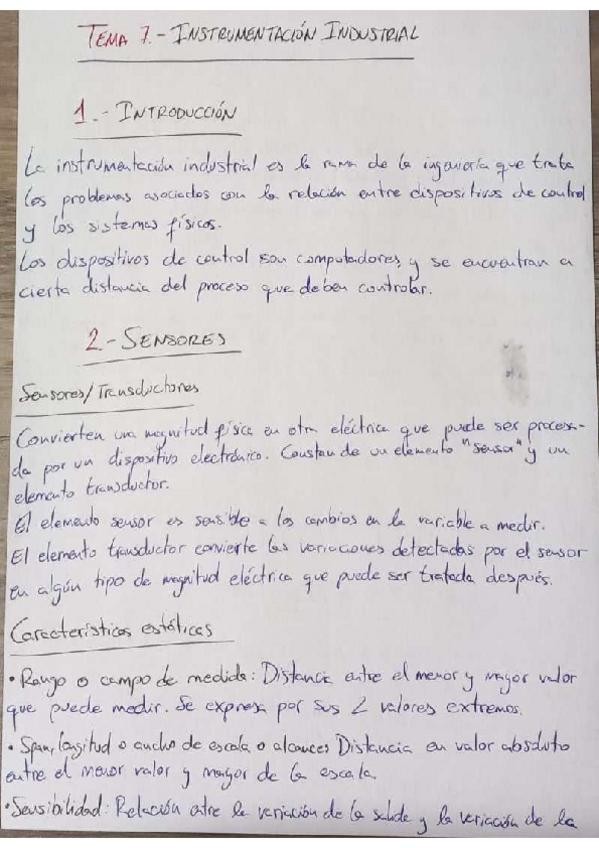 TEMA 7.- INSTRUMENTACIÓN INDUSTRIAL
1.- INTRODUCCIÓN
La instrumentación industrial es la rama de la ingeniería que trata
los problemas asociados con la relación entre dispositivos de control
y los sistemas físicos.
Los dispositivos de control son computadores, y se encuentran a
cierta distancia del proceso que deben controlar.
2.- SENSORES
Sensores/Transductores
Convierten una magnitud física en otra eléctrica que puede ser procesa-
da por un dispositivo electrónico. Constan de un elemento "sensor" y un
elemento transductor.
El elemento sensor es sensible a los cambios en la variable a medir.
El elemento transductor convierte las variaciones detectadas por el sensor
en algún tipo de magnitud eléctrica que puede ser tratada después.
Características estáticas
• Rango o campo de medida: Distancia entre el menor y mayor valor
que puede medir. Se expresa por sus 2 valores extremos.
• Span, longitud o ancho de escala o alcance: Distancia en valor absoluto
entre el menor valor y mayor de la escala.
• Sensibilidad: Relación entre la variación de la salida y la variación de la